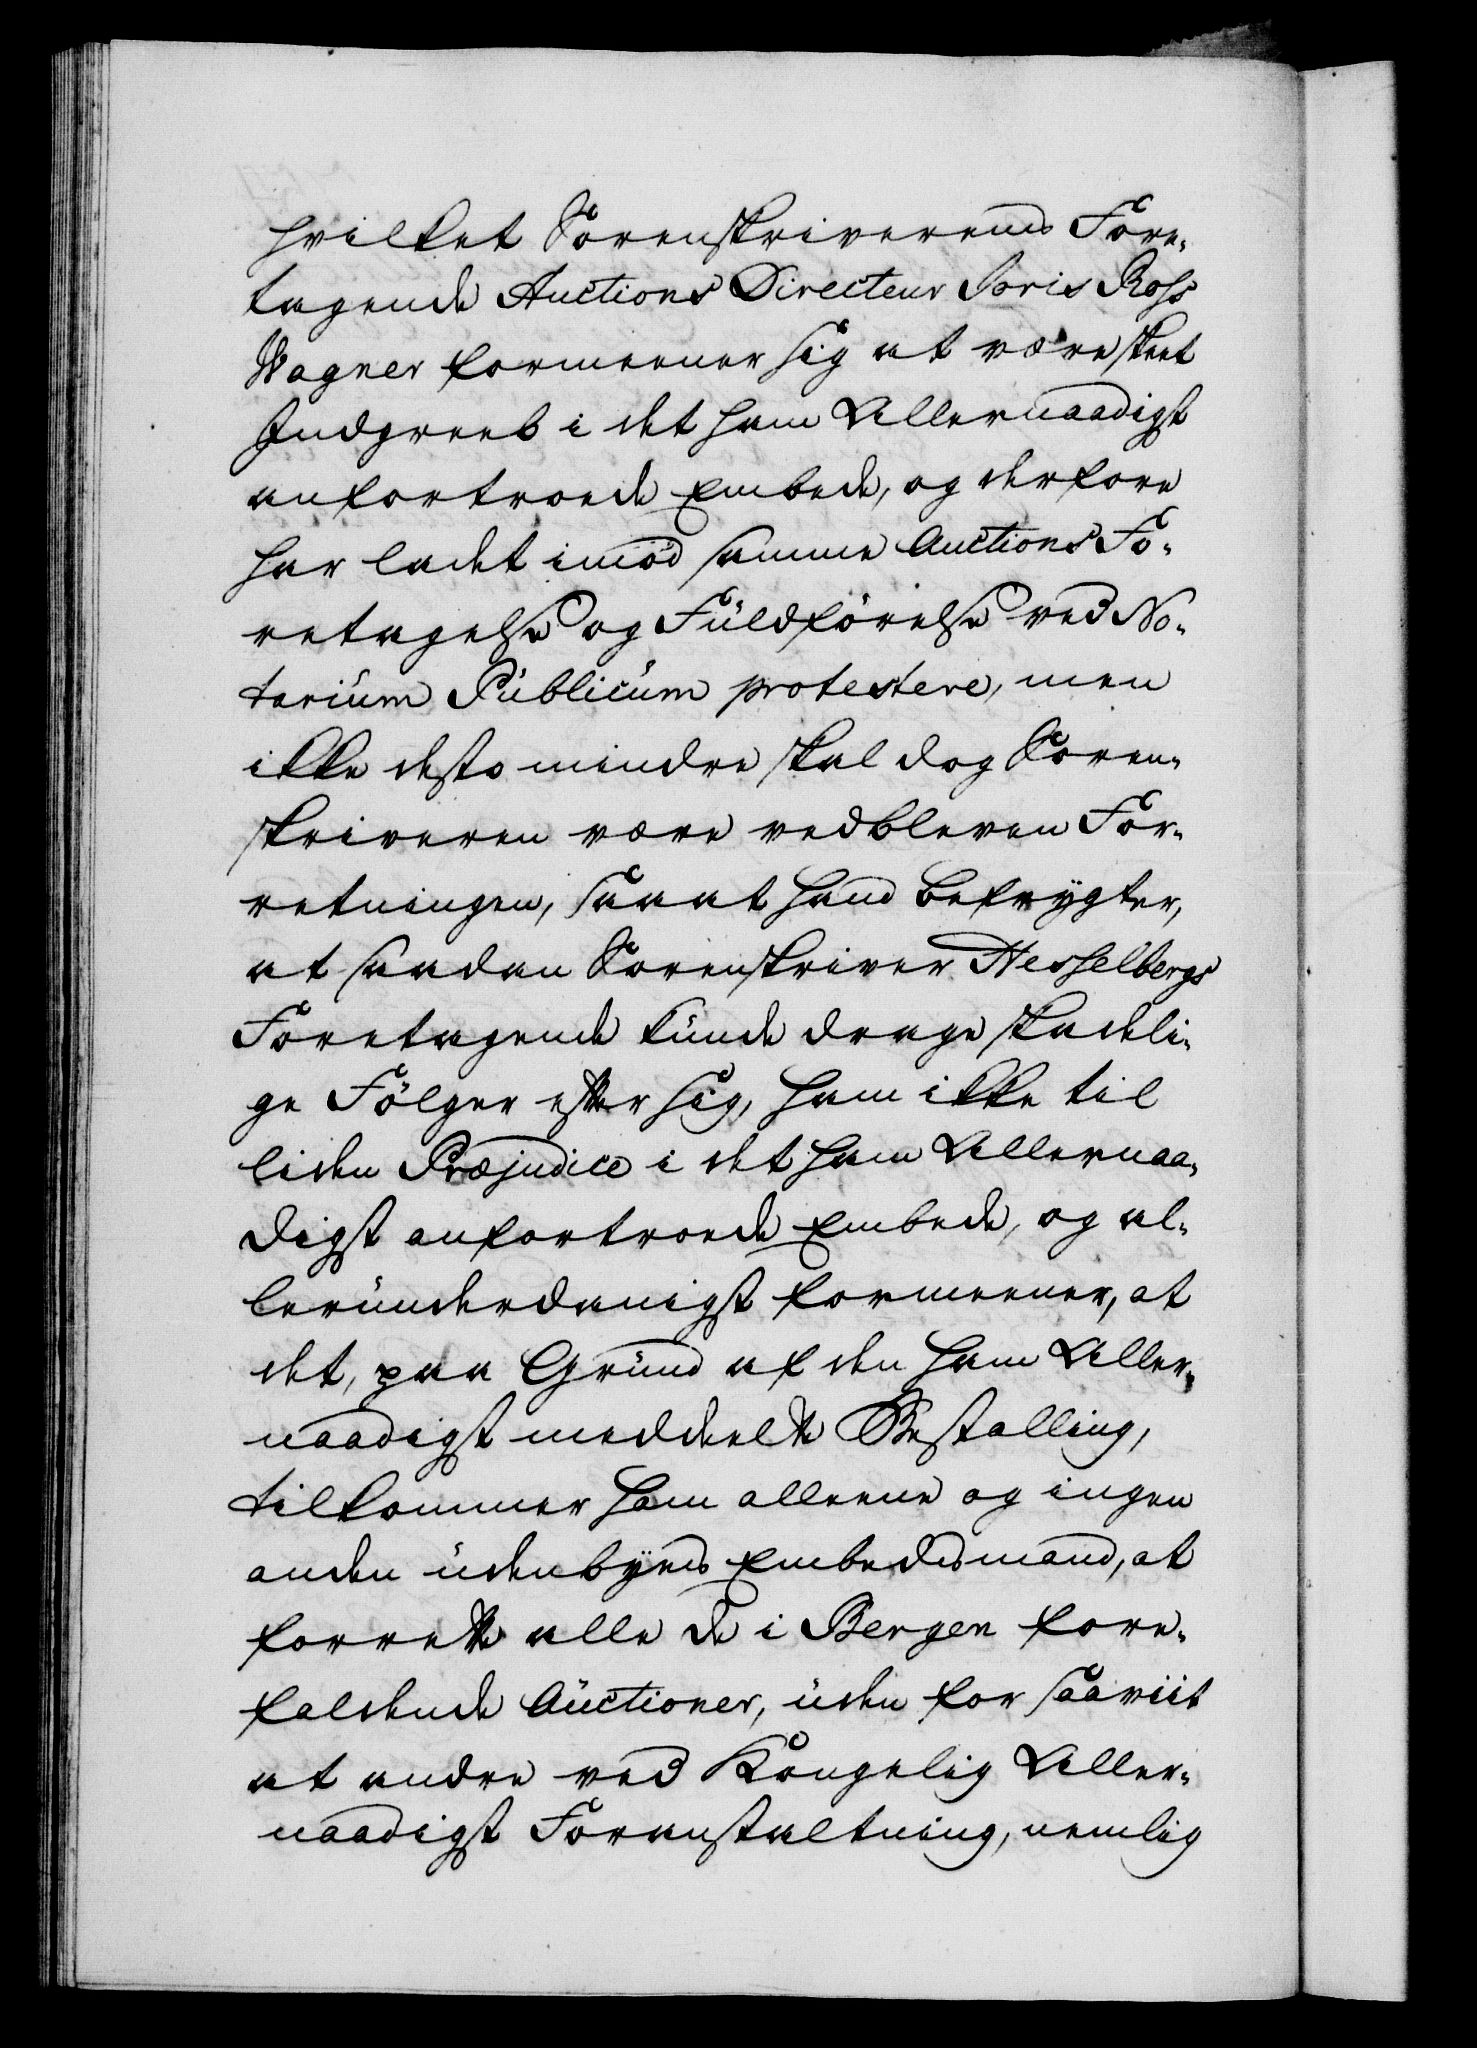 hvilket Sorenskriverens Fore-
tagende Auctions Directeur Joris Ross
Wagner formeener sig at være skeet
Indgreeb i det ham Allernaadigst
anfortroede Embede, og derfore
har ladet imod samme Auctions Fo-
retagelse og Fuldförelse ved No-
tarium Publicum protestere, men
ikke desto mindre skal dog Soren-
skriveren være vedbleven For-
retningen, saa at hand befrygter,
at saadan Sorenskriver Hesselbergs
Foretagende kunde drage skadeli-
ge Fölger efter sig, ham ikke til
liden Præjudice i det ham Allernaa-
digst anfortroede Embede, og al-
lerunderdanigst formeener, at
det, paa Grund af den ham Aller-
naadigst meddeelte Bestalling,
tilkommer ham alleene og ingen
anden udenbÿes Embedsmand, at
forrette alle de i Bergen fore-
faldende Auctioner, uden for saaviit
at andre ved Kongelig Aller-
naadigst Foranstaltning, nemlig